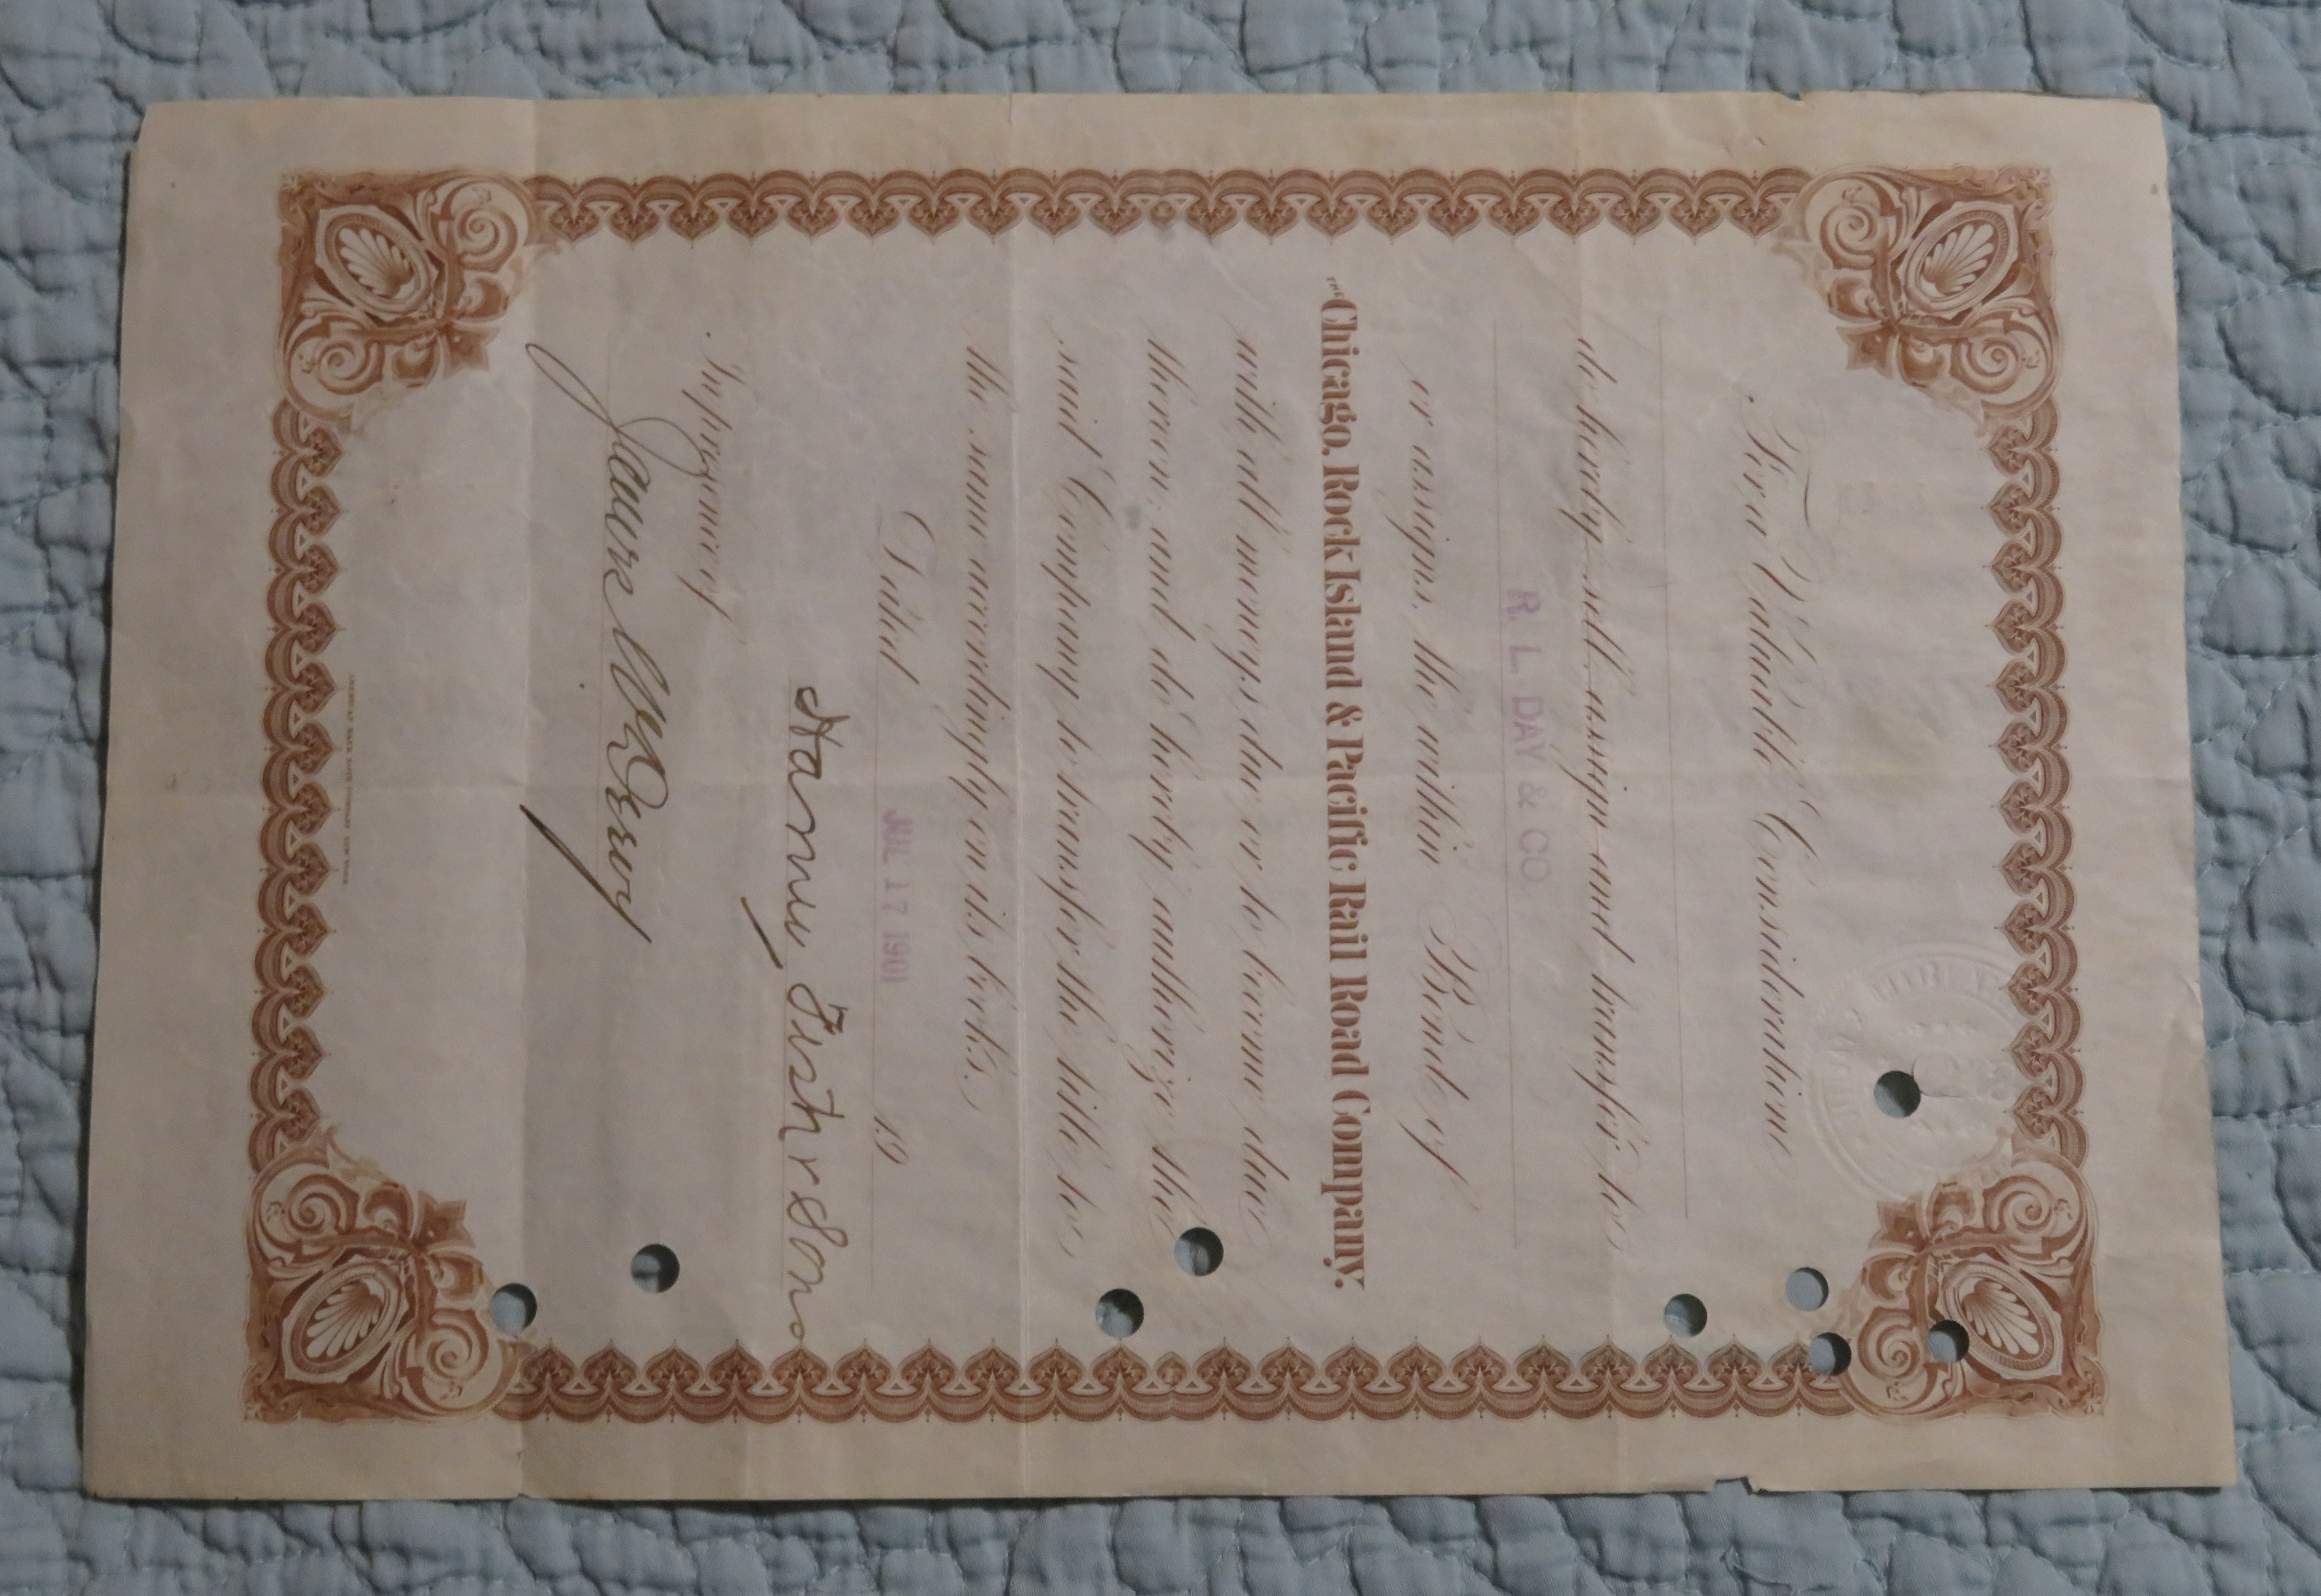 For Valuable Consideration
do hereby sell, assign and transfer to
R. L. DAY & CO.
or assigns, the within Bond of
THE Chicago, Rock Island & Pacific Rail Road Company,
with all moneys due or to become due
thereon, and do hereby authorize the
said Company to transfer the title to
the same accordingly on its books.
Dated JUL 17 1901 19
Harvey Fisk & Sons
In presence of
James
AMERICAN BANK NOTE COMPANY, NEW YORK.